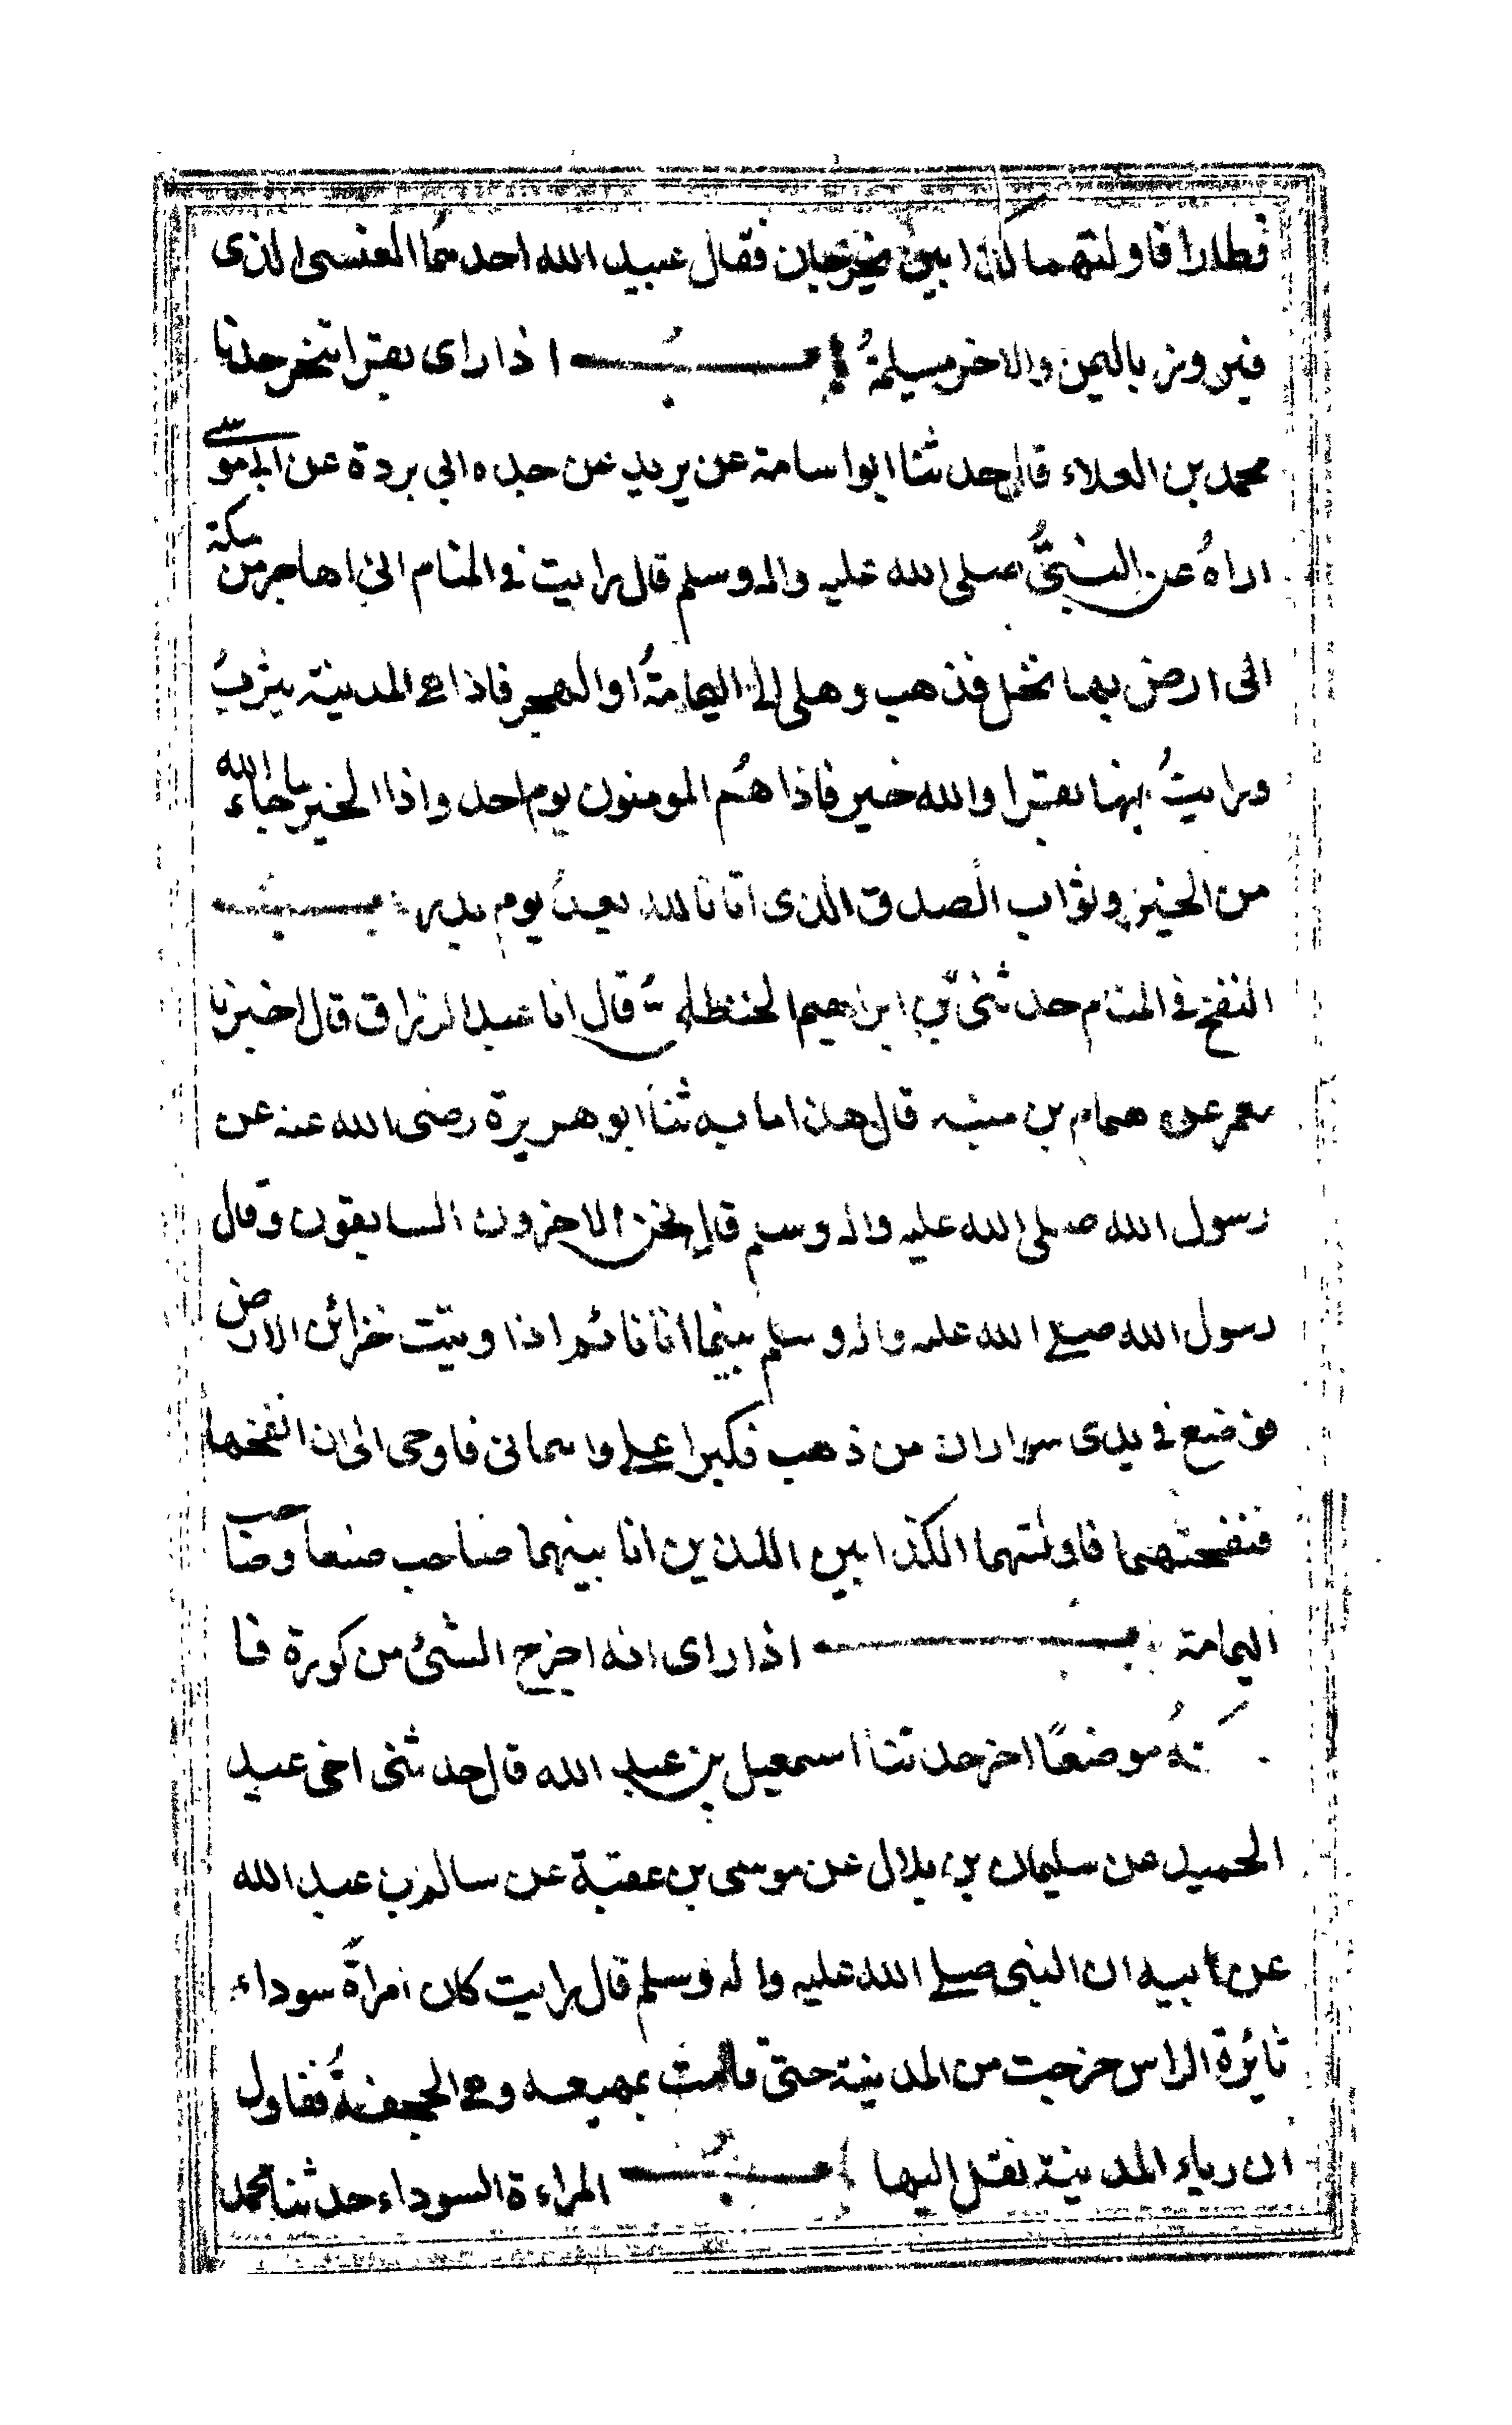 فطارا فاولتهما كذابين يخرجان فقال عبيد الله احدهما العنسي الذى
فيروز باليمن والاخر مسيلمة باب اذا راى بقرا تنحر حدثنا
محمد بن العلاء قال حدثنا ابو اسامة عن بريد عن جده ابي بردة عن ابي موسى
اراه عن النبي صلى الله عليه واله وسلم قال رايت في المنام انى اهاجر من مكة
الى ارض بها نخل فذهب وهلى الى اليمامة او الهجر فاذا هي المدينة يثرب
ورايت فيها بقرا والله خير فاذا هم المومنون يوم احد واذا الخير ما جاء الله
من الخير وثواب الصدق الذى اتانا الله بعد يوم بدر باب
النفخ في المنام حدثنى بن ابراهيم الحنظلى قال انا عبد الرزاق قال اخبرنا
معمر عن همام بن منبه قال هذا ما به ثنا ابو هريرة رضى الله عنه عن
رسول الله صلى الله عليه واله وسلم قال نحن الاخرون السابقون وقال
رسول الله صلى الله عليه واله وسلم بينما انا نائم اذا وتيت خزائن الارض
فوضع في يدى سواران من ذهب فكبرا على واهمانى فاوحى الى ان انفخهما
فنفختهما فاولتهما الكذابين اللذين انا بينهما صاحب صنعا وصاحب
اليمامة باب اذا راى انه اخرج الشئ من كورة فا
نه موضعا اخر حدثنا اسمعيل بن عبد الله قال حدثنى اخى عبد
الحميد عن سليمان بن بلال عن موسى بن عقبة عن سالم بن عبد الله
عن ابيه ان النبى صلى الله عليه واله وسلم قال رايت كان امراة سوداء
ثائرة الراس خرجت من المدينة حتى قامت بمهيعه وهي الجحفة فاول
ان وباء المدينة نقل اليها باب المراءة السوداء حدثنا محمد